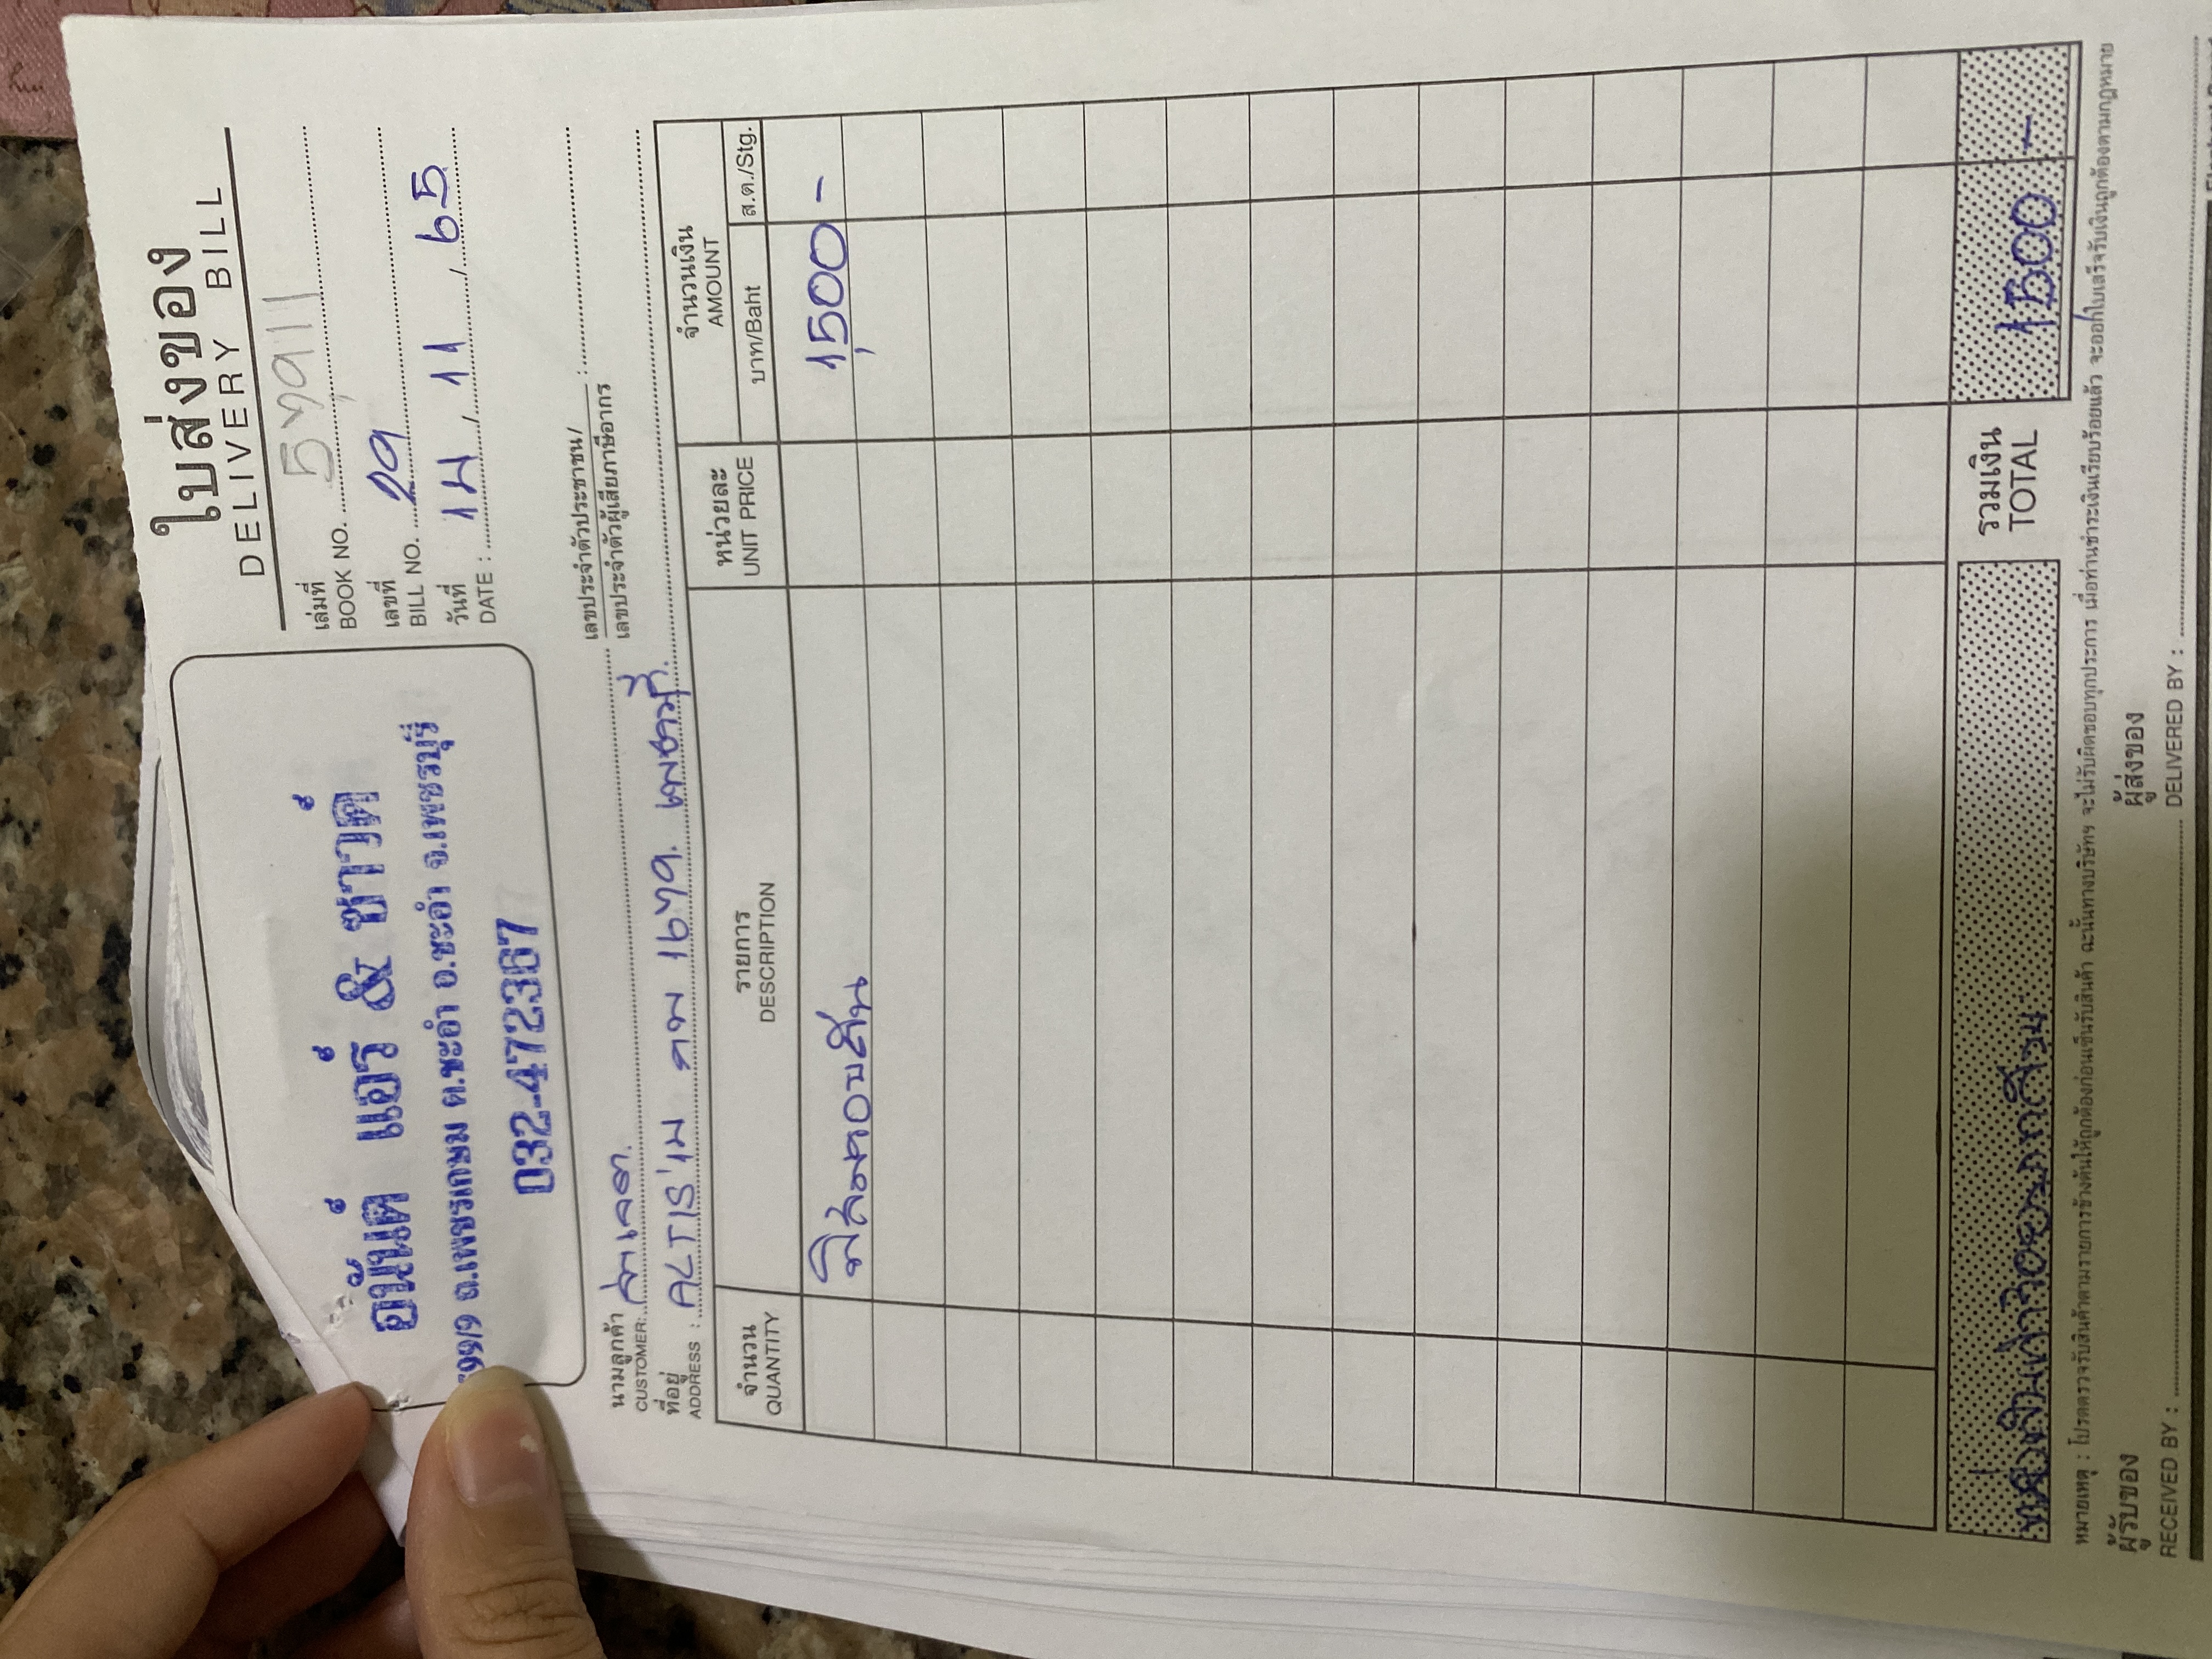 อนันต์ แอร์ & ซาวด์
999/9 ถ.เพชรเกษม ต.ชะอำ อ.ชะอำ จ.เพชรบุรี
032-472367
ใบส่งของ
DELIVERY BILL
เล่มที่
BOOK NO.
เลขที่
BILL NO. 29
วันที่
DATE : / 11 / 65
นามลูกค้า
CUSTOMER:
เลขประจำตัวประชาชน/ :
เลขประจำตัวผู้เสียภาษีอากร
ที่อยู่
ADDRESS : ALTIS
จำนวน
QUANTITY
รายการ
DESCRIPTION
หน่วยละ
UNIT PRICE
จำนวนเงิน
AMOUNT
บาท/Baht
ส.ต./Stg.
ฟิล์มรอบคัน 1,500 -
หนึ่งพันห้าร้อยบาทถ้วน
รวมเงิน
TOTAL
1,500 -
หมายเหตุ : โปรดตรวจรับสินค้าตามรายการข้างต้นให้ถูกต้องก่อนเซ็นรับสินค้า ฉะนั้นทางบริษัทฯ จะไม่รับผิดชอบทุกประการ เมื่อท่านชำระเงินเรียบร้อยแล้ว จะออกใบเสร็จรับเงินถูกต้องตามกฎหมาย
ผู้รับของ
RECEIVED BY :
ผู้ส่งของ
DELIVERED BY :